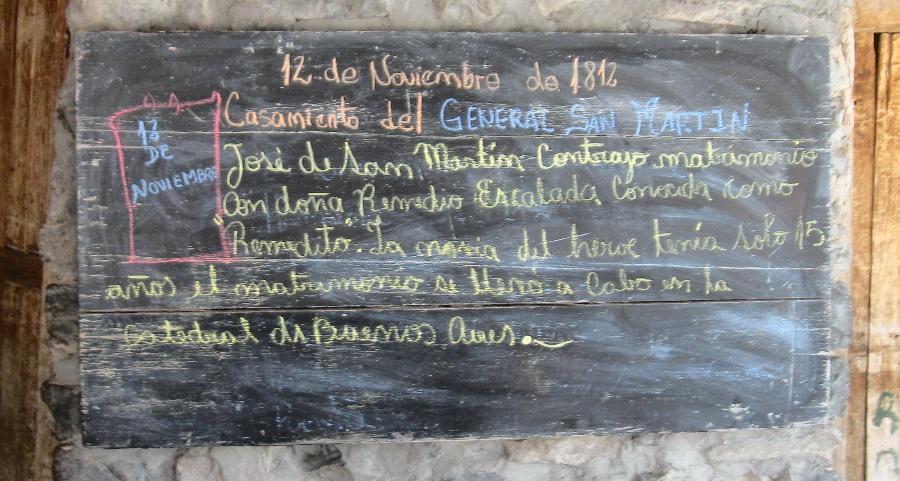 12 de Noviembre de 1812
Casamiento del GENERAL SAN MARTIN
12
DE
NOVIEMBRE
José de San Martín Contrajo matrimonio
Con doña Remedio Escalada Conocida como
"Remedito". La novia del heroe tenía solo 15
años el matrimonio se llevó a Cabo en la
catedral de Buenos Aires.